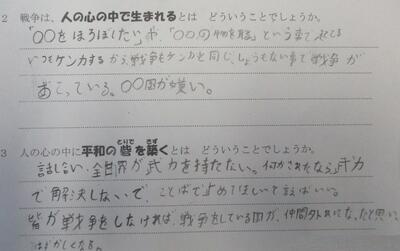 2 戦争は、人の心の中で生まれるとは どういうことでしょうか。
「〇〇をほろぼしたい」や、「〇〇の物を取る」という事で起こる
いつもケンカするから、戦争もケンカと同じ、しょうもない事で戦争が
おこっている。〇〇国が嫌い。
3 人の心の中に平和の砦を築くとは どういうことでしょうか。
とりで きず
話し合い・全世界が武力を持たない。何かされたなら、武力
で解決しないで、ことばで止めてほしいと言えばいい。
皆が戦争をしなければ、戦争をしている国が、仲間外れになったと思い、
はずかしくなる。